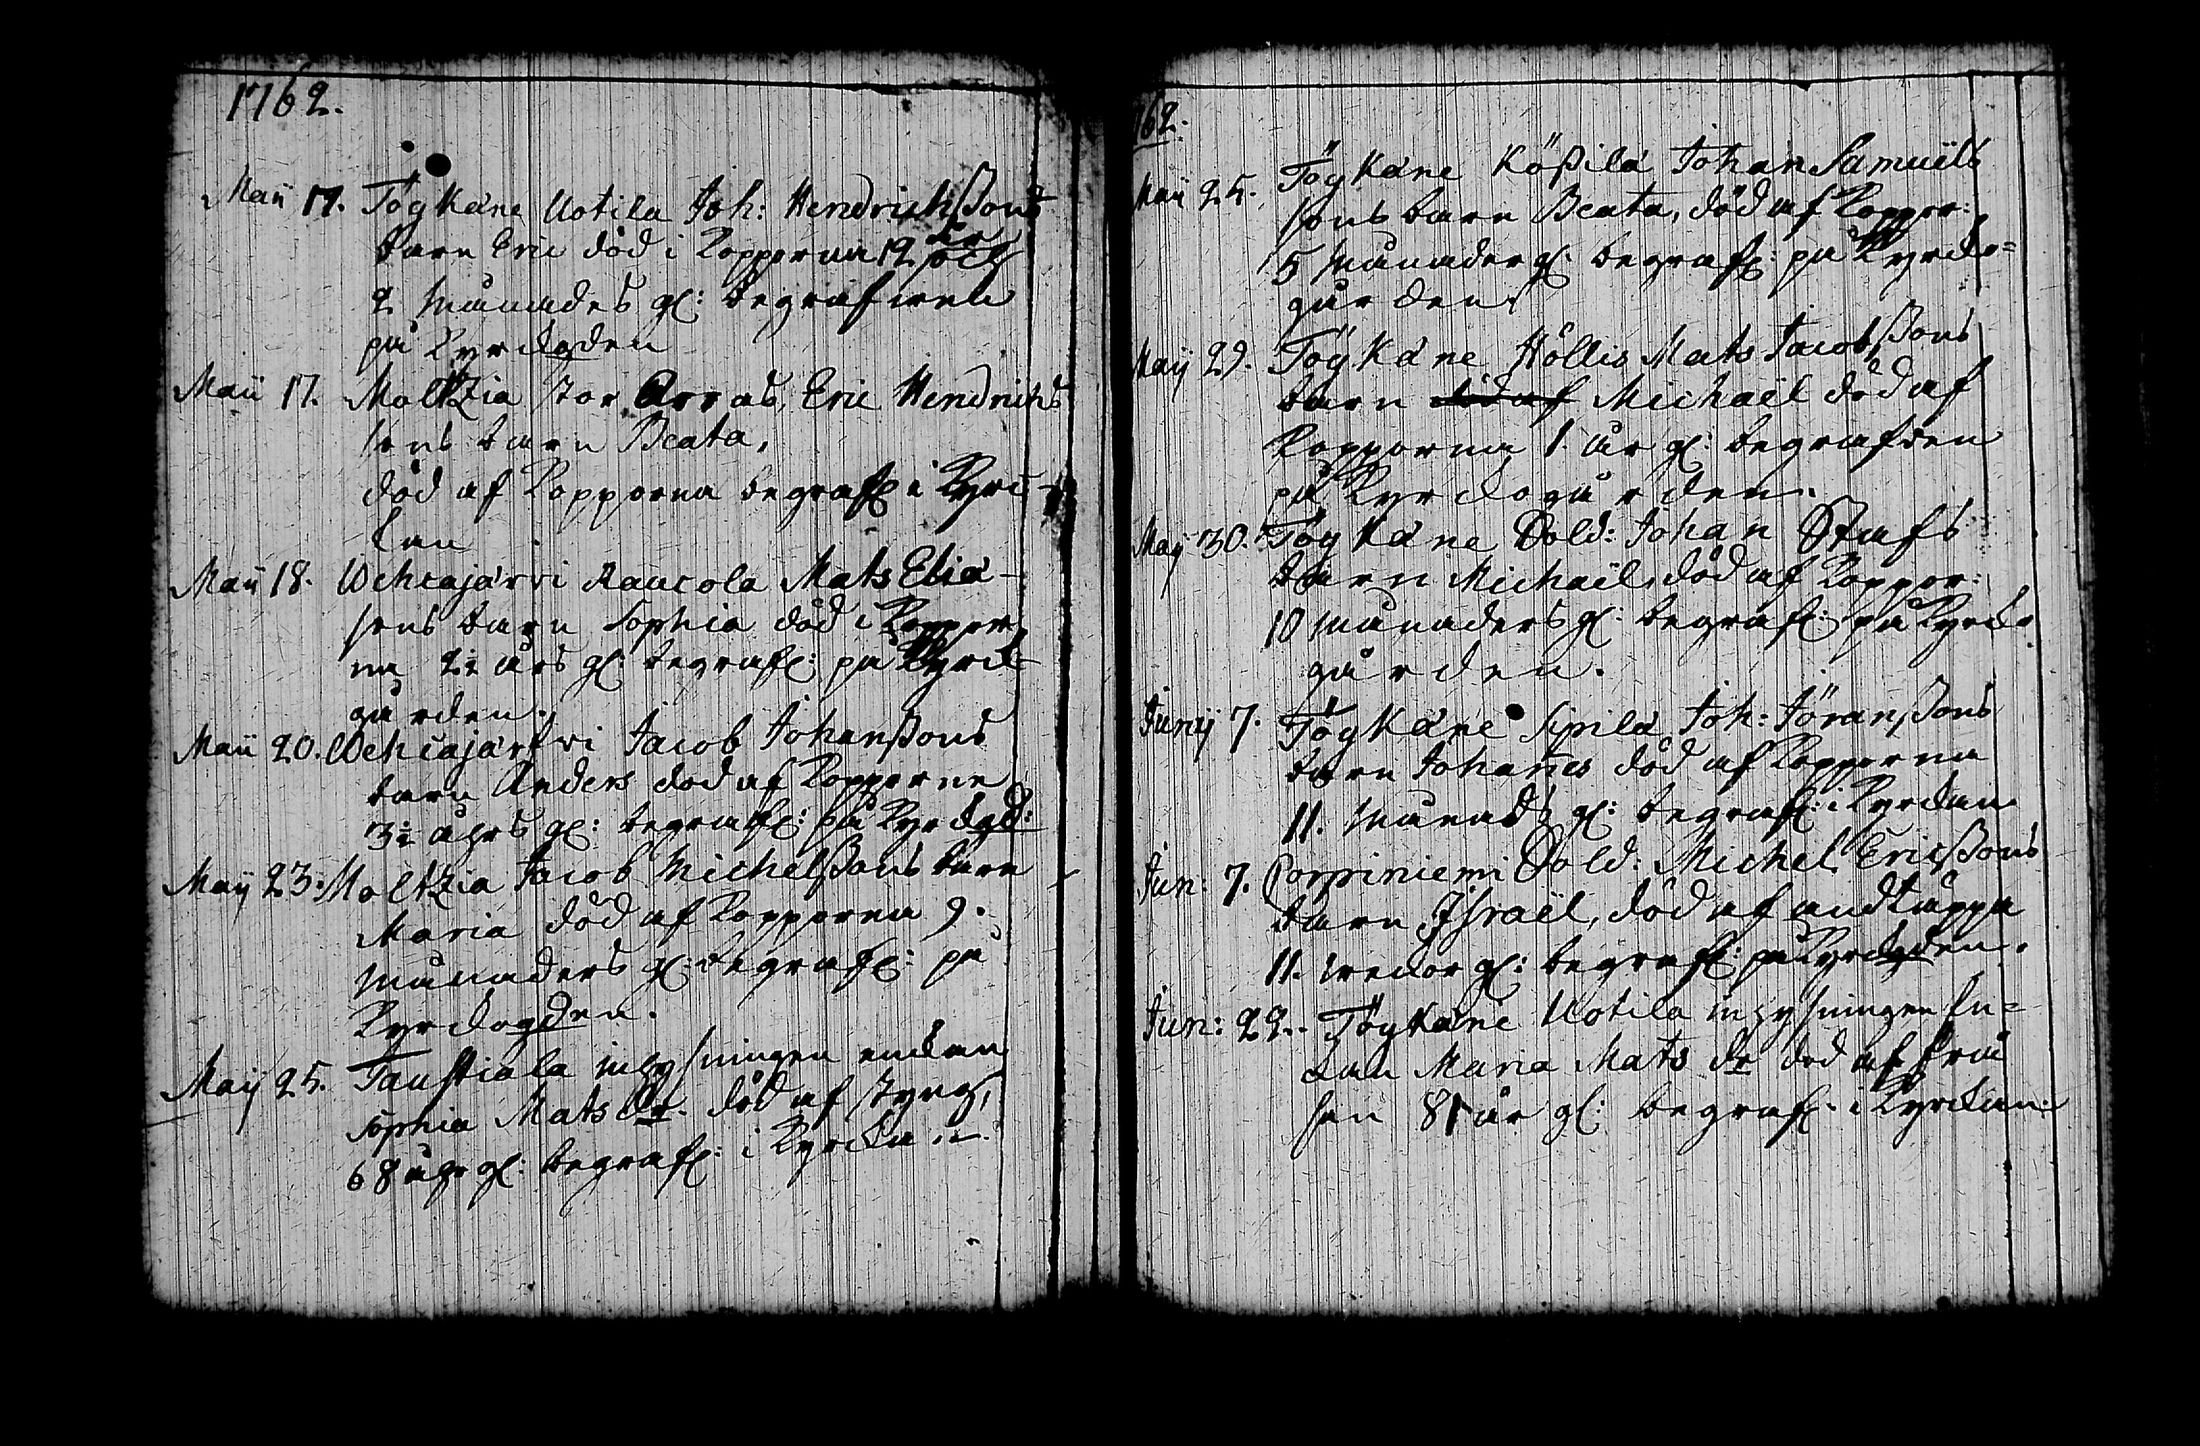 1762.
Maij 17. Töykäne Uotila Joh: Hendrichssons
barn Eric död i Kopporna 12 år och
2 månades gl: begrafwen
på Kyrckogden
Maij 17. Moltzia stor Arras, Eric Hendrichs
sons barn Beata,
död af Kopporna begrafn i Kyrc-
kan
Maij 18. Wehcajärvi Raucola Mats Elia-
sons barn Sophia död i Koppor
na 2½ års gl: begrafn: på Kyrck
gården.
Maij 20. Wehcajärfvi Jacob Johanssons
barn Anders död af Kopporne
3½ åhrs gl: begrafn: på Kyrckgd:
Maij 23: Moltzia Jacob Michelssons barn
Maria död af Kopporna 9.
månaders gl: begrafn: på
Kyrckogden.
Maij 25. Taustiala inhysningen enckan
Sophia Mats dr. död af styng,
68 åhr gl: begrafn: i Kyrckan.
762.
Maij 25. Töykäne Kößilä Johan Samuels
sons barn Beata, död af Koppor:
5 månader gl: begrafn: på Kyrcko=
gården.
Maij 29. Töykäne Höllis Mats Jacobssons
barn död af Michaël död af
Kopporna 1 år gl: begrafwen
på Kyrckogården.
Maij 30. Töykäne Sold: Johan Stafs
barn Michaël, död af Koppor:
10 månaders gl: begrafn: på Kyrcko
gården.
Junij 7. Töykäne Sipilä Joh: Jöranssons
barn Johanes död af Kopporna
11. månads gl: begrafn: i Kyrckan
Jun: 7. Porpiniemi Sold: Michel Ericssons
barn Jsraël, död af andtäppa
11. weckor gl: begrafn: på Kyrckgden.
Jun: 22. Töykäne Uotila inhysningen En=
kan Maria Mats dr död af frü
sen 81 år gl: begrafn: i Kyrckan